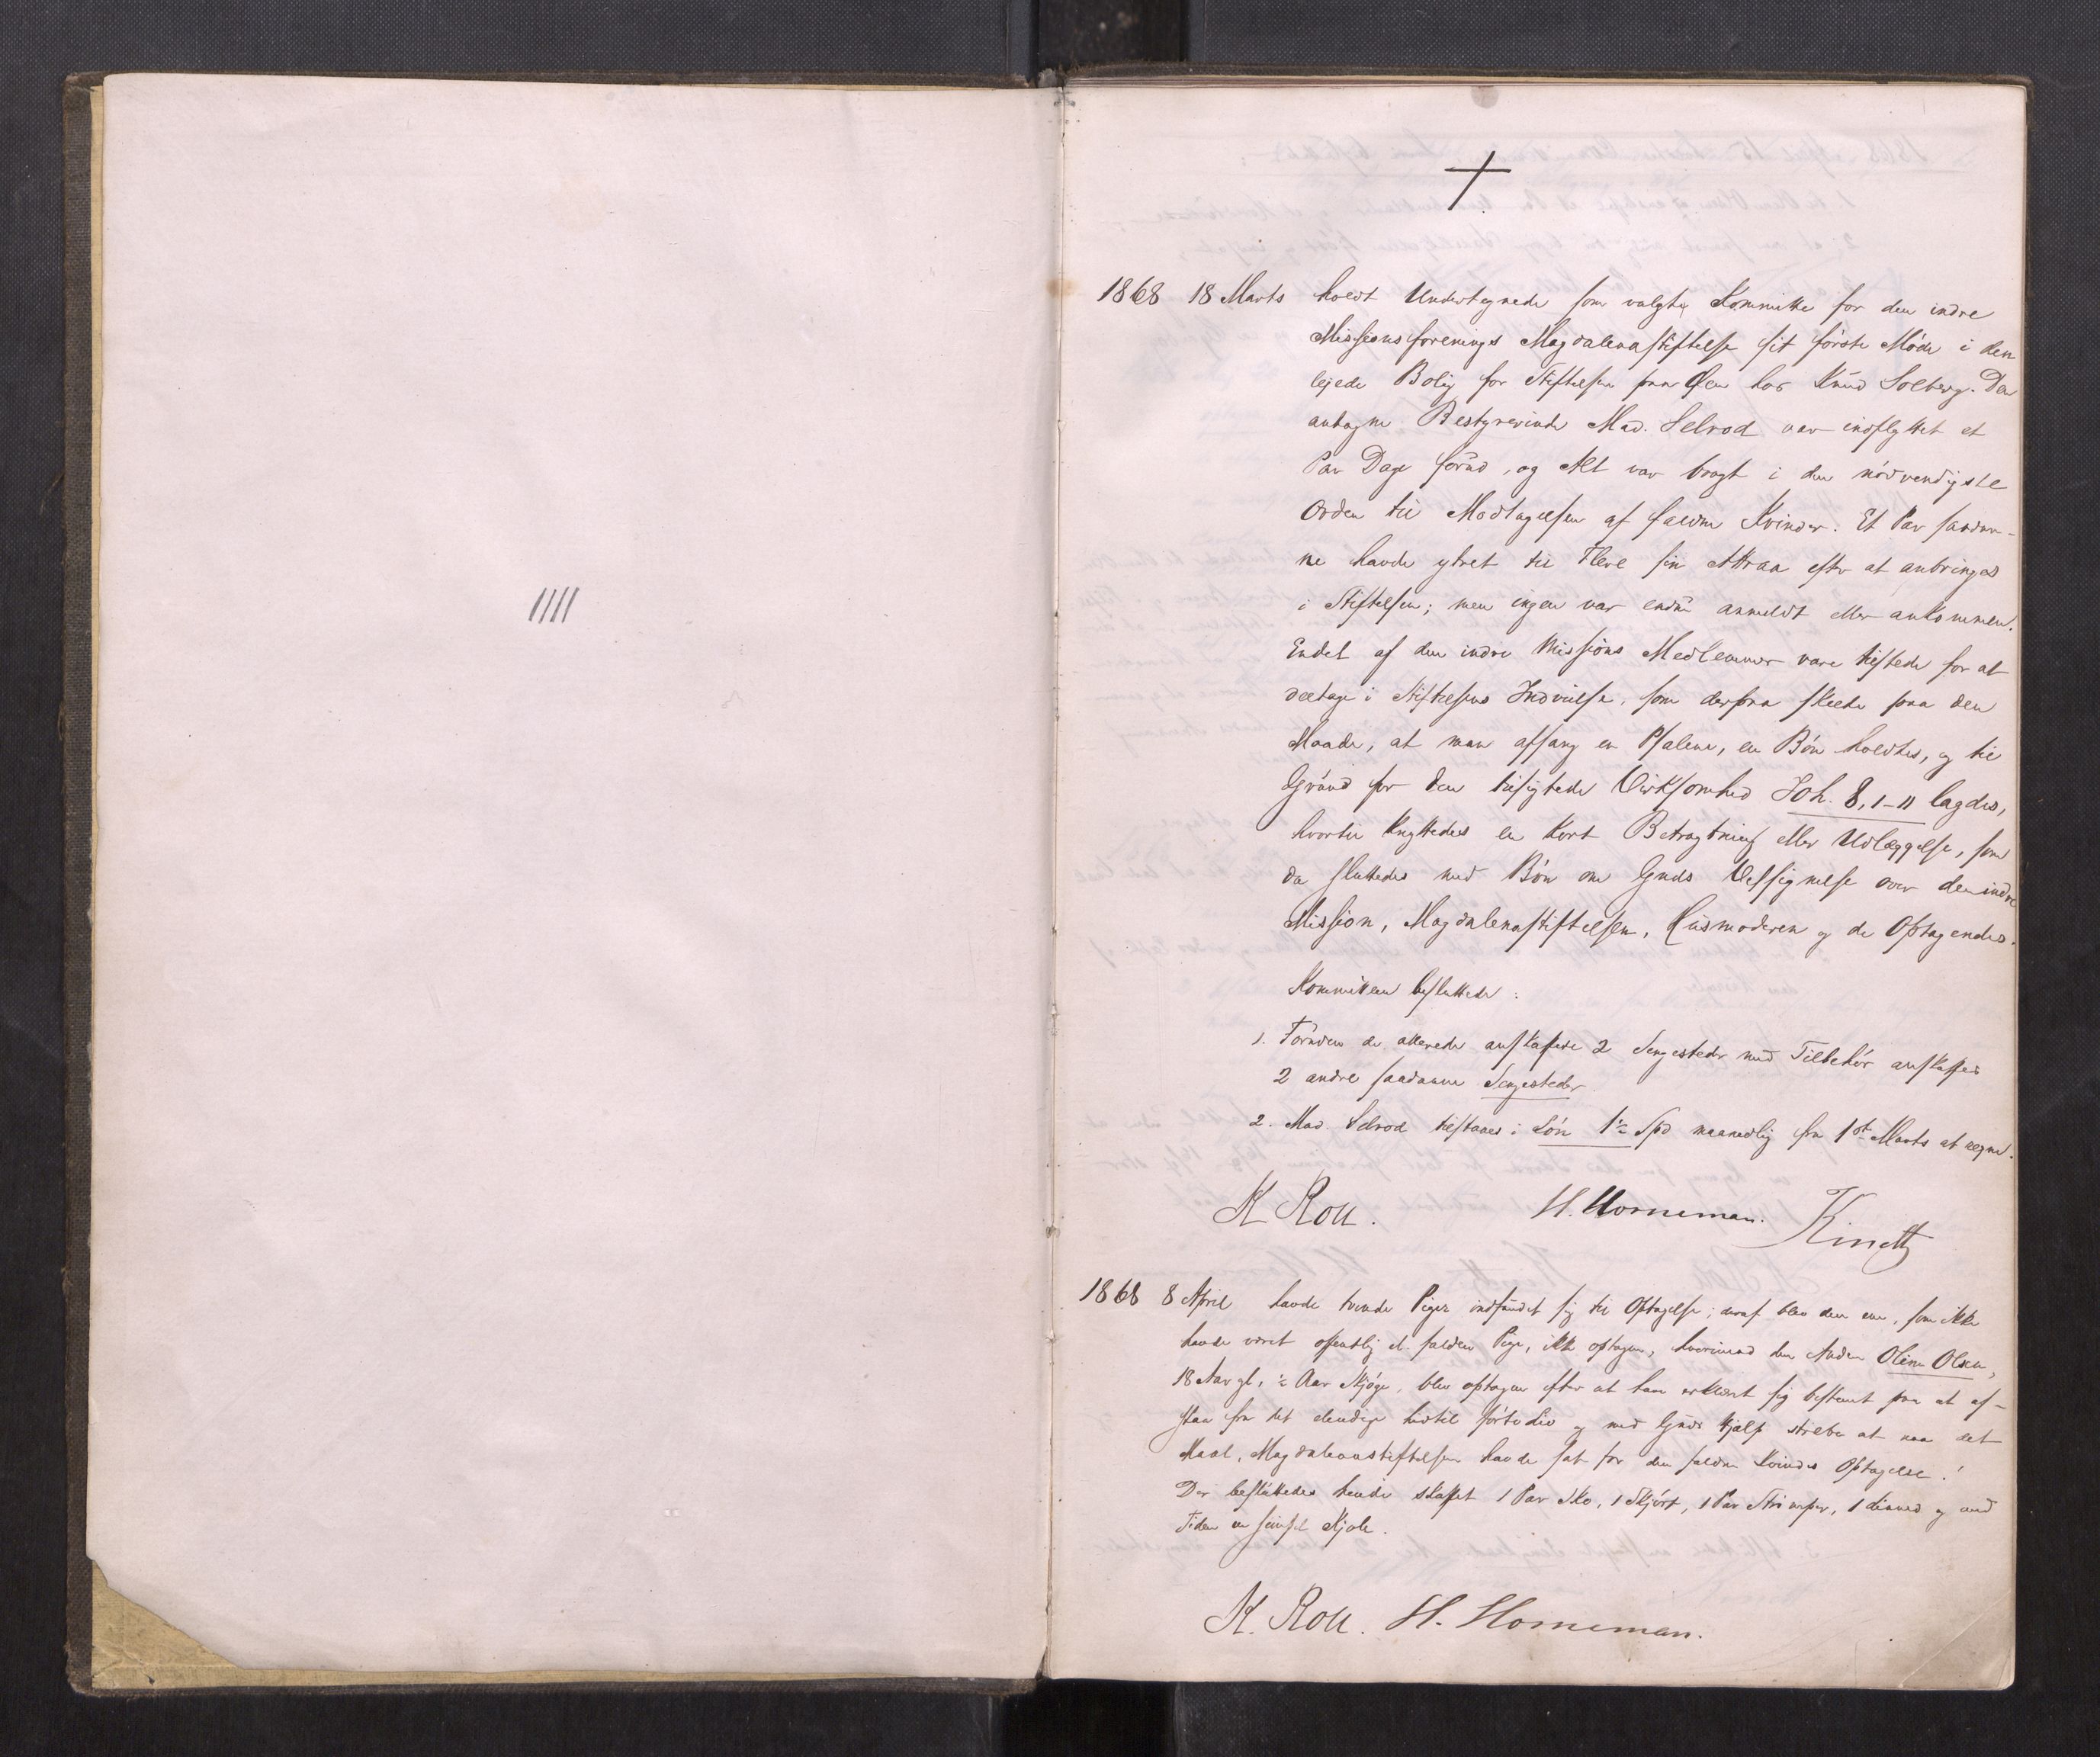 1868 18 Marts holdt Undertegnede som valgte Kommitte for den indre
Missionsforenings Magdalenastiftelse sit første Møde i den
lejede Bolig for Stiftelsen paa Øen hos Knud Solberg. Den
antagne Bestyrerinde Mad. Selrod var indflyttet et
Par Dage førud, og Alt var bragt i den nødvendigste
Orden til Modtagelsen af faldne Kvinder. Et Par saadan-
ne havde ytret til Flere sin Attraa efter at anbringes
i Stiftelsen; men ingen var endnu anmeldt eller ankommen.
Endel af den indre Missions Medlemmer vare tilstede for at
deeltage i Stiftelsens Indvielse, som derpaa skeede paa den
Maade, at man afsang en Psalme, en Bøn holdtes, og til
Grund for den tilsigtede Virksomhed Joh. 8, 1-11 lagdes,
hvortil knyttedes en kort Betragtning eller Udlæggelse, som
da sluttedes med Bøn om Guds Velsignelse over den indre
Mission, Magdalenastiftelsen, Husmoderen og de Optagendes.
Kommitteen besluttede:
1. Foruden de allerede anskaffede 2 Sengesteder med Tilbehør anskaffes
2 andre saadanne Sengesteder.
2. Mad. Selrod tilstaaes i Løn 1½ Spd maanedlig fra 1st Marts at regne.
K Roll. H. Horneman. Kinch
1868 8 April havde tvende Piger indfundet sig til Optagelse; deraf blev den ene, som ikke
havde været offentlig el. falden Pige, ikke optagen, hvorimod den Anden Oline Olsen,
18 Aar gl, ½ Aar Skjøge, blev optagen efter at have erklæret sig bestemt paa at af-
staa fra det elendige hidtil førte Liv og med Guds Hjælp stræbe at naa det
Maal, Magdalenastiftelsen havde sat for den faldne Kvindes Optagelse!
Der besluttedes hende skaffet 1 Par Sko, 1 Skjørt, 1 Par Strømper, 1 Linned og med
Tiden en simpel Kjole.
K. Roll. H. Horneman.